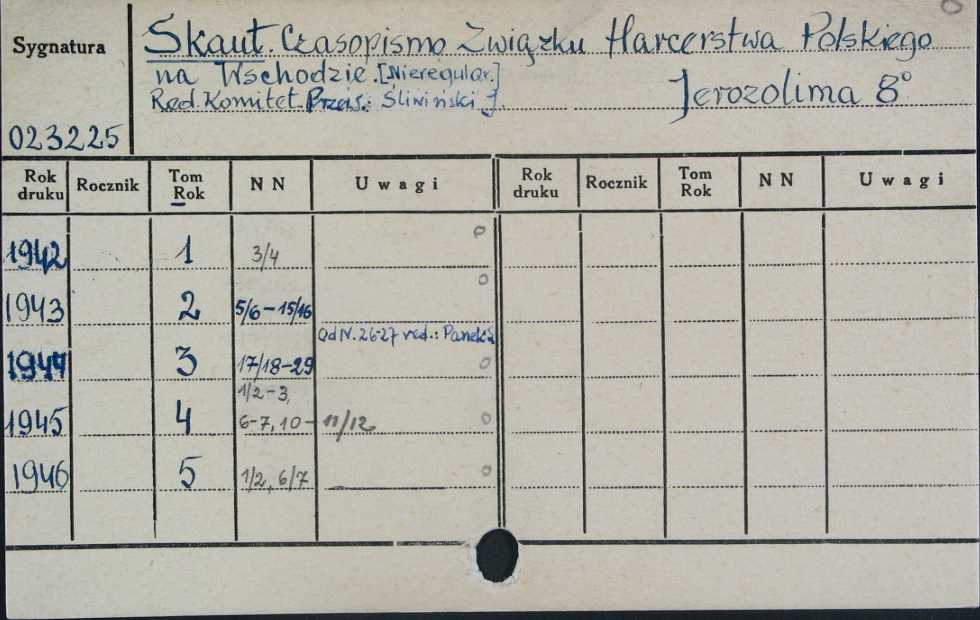 Sygnatura
Skaut. Czasopismo Związku Harcerstwa Polskiego
na Wschodzie. [Nieregular.]
Red. Komitet. Śliwiński J. Jerozolima 8°
023225
Rok druku Rocznik Tom Rok NN Uwagi Rok druku Rocznik Tom Rok NN Uwagi
1942 1 3/4
1943 2 5/6-15/16
Od N. 26-27 red.:
1944 3 17/18-29
1/2-3,
1945 4 6-7, 10- 11/12
1946 5 1/2, 6/7